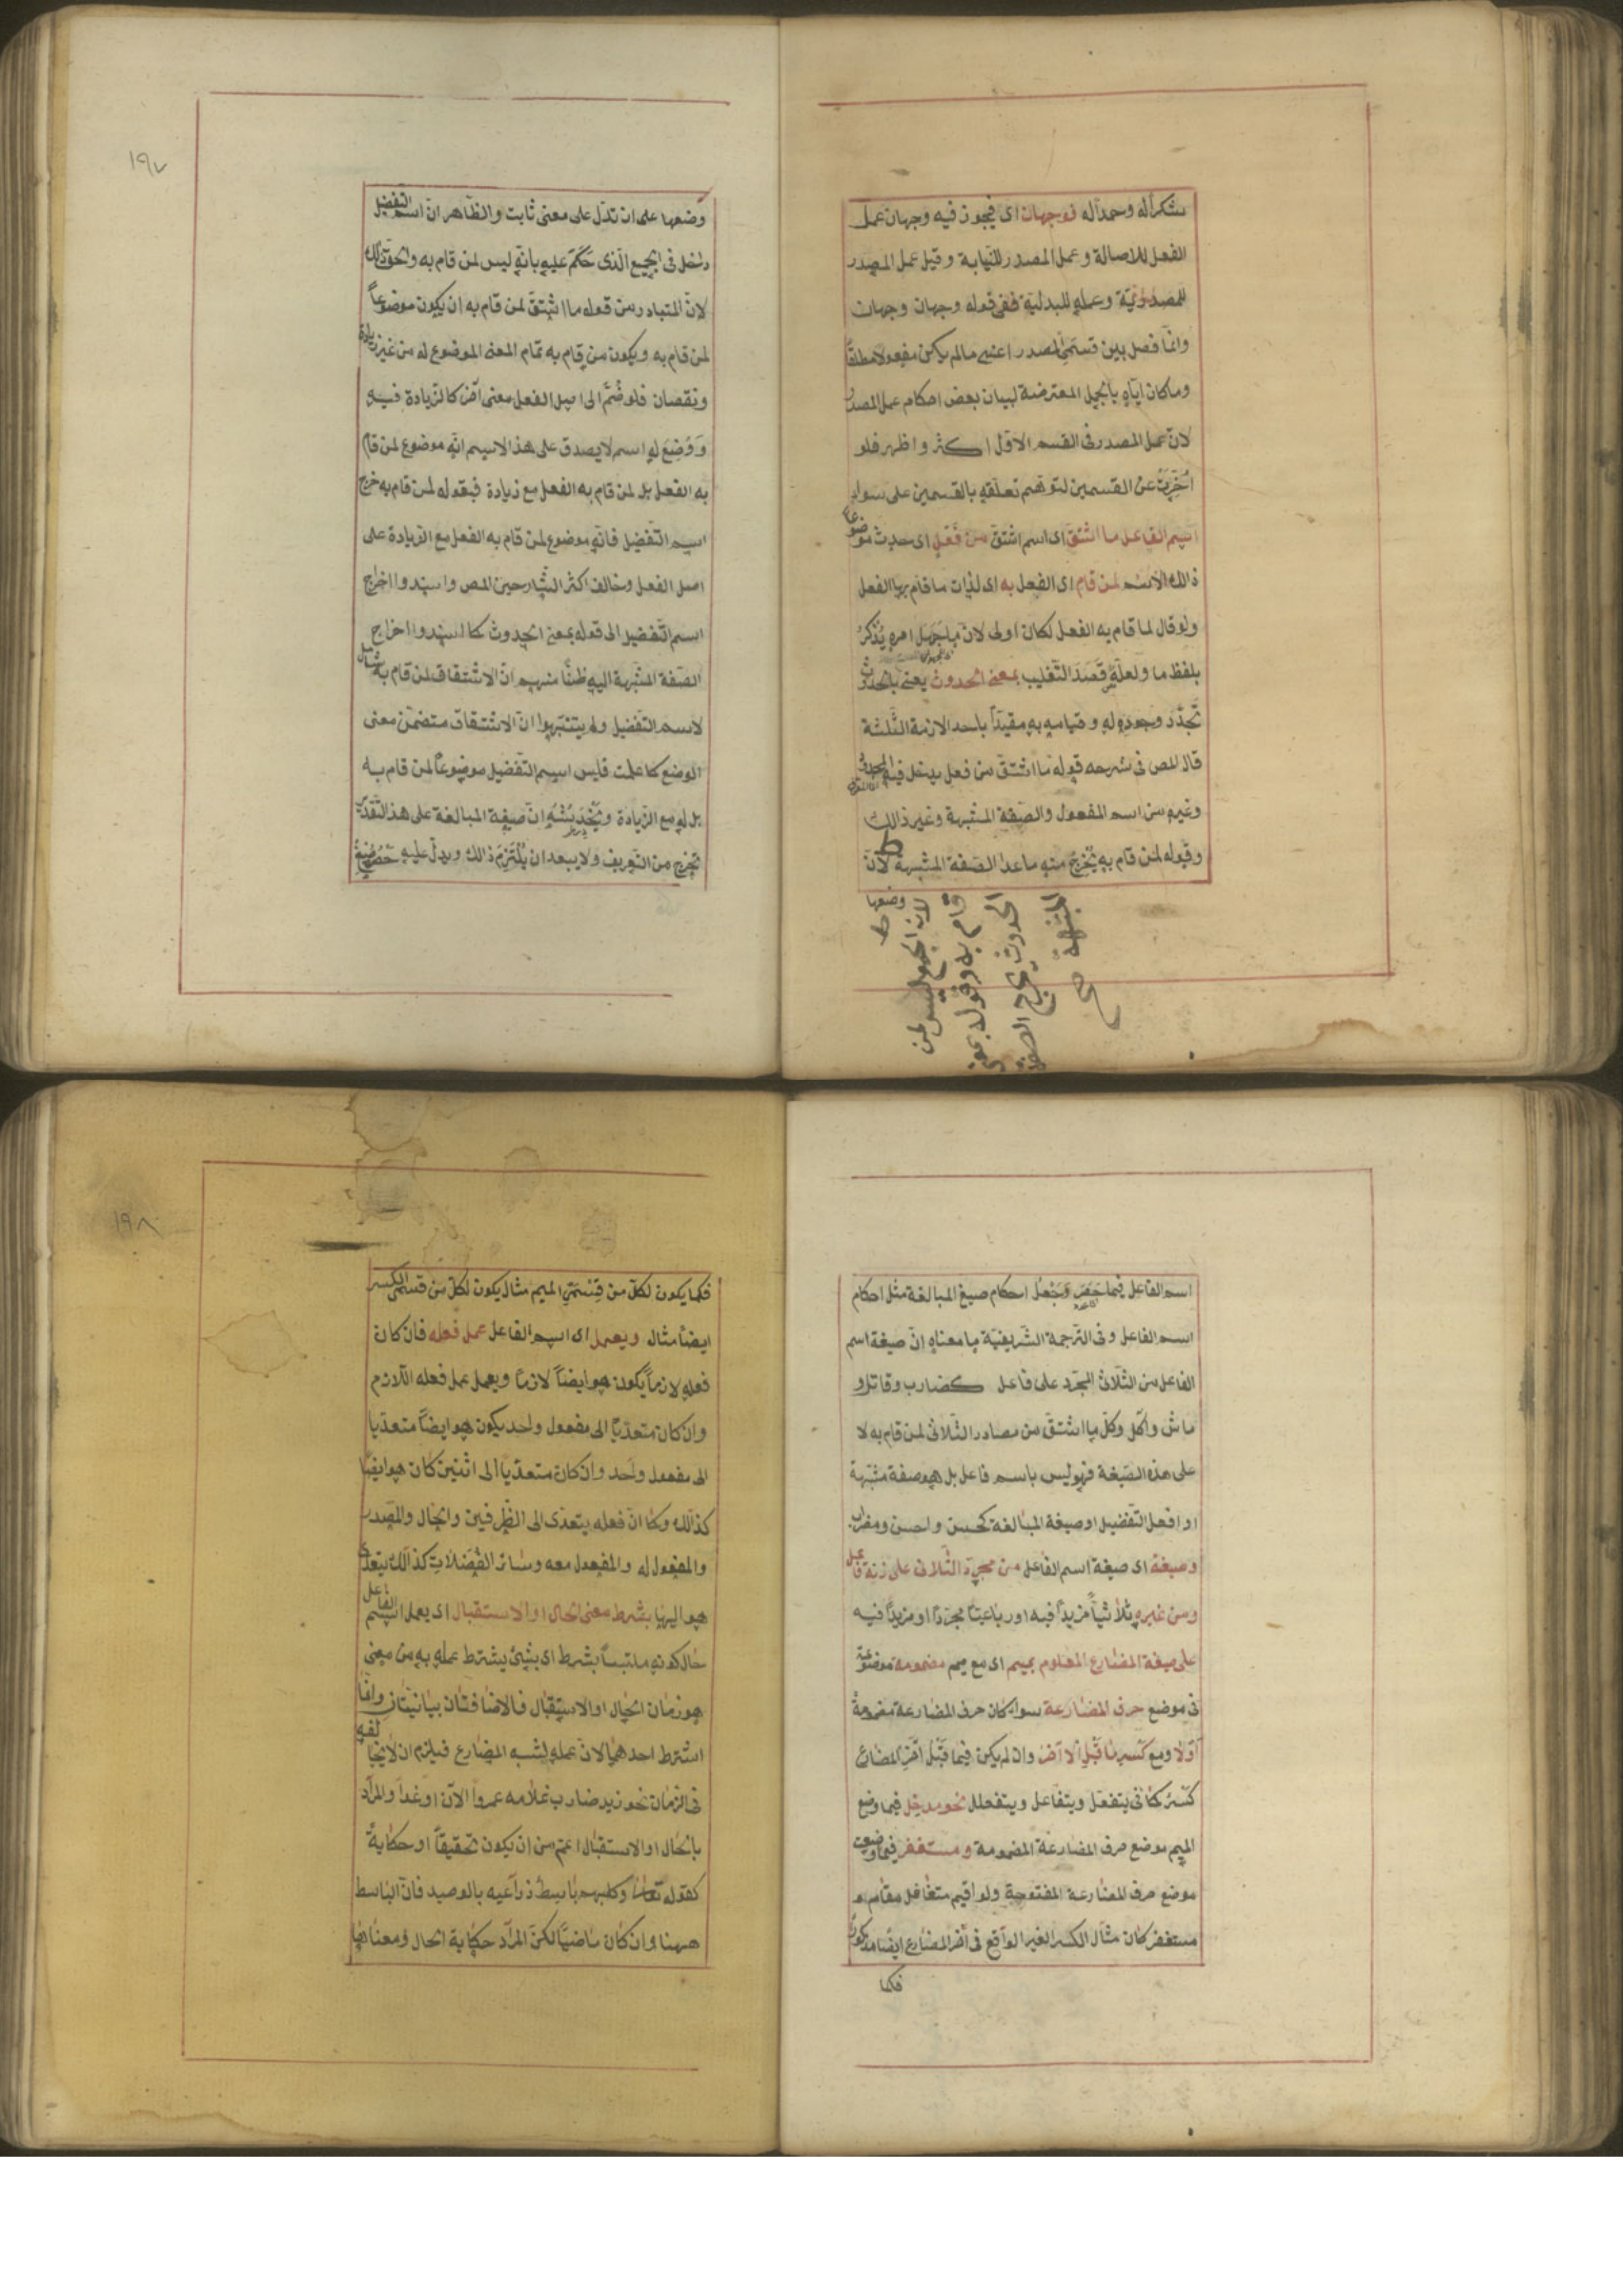 شكرًا له وحمدًا له فوجهان اى فيجوز فيه وجهان عمل
الفعل للاصالة وعمل المصدر للنيابة وقيل عمل المصدر
للمصدريّة وعمله للبدليّة ففى قوله وجهان وجهان
وانّما فصل بين قسمَىِ المصدر اعنى مالم يكن مفعولا مطلقًا
وما كان ايّاه بالجمل المعترضة لبيان بعض احكام عمل المصدر
لانّ عمل المصدر فى القسم الاوّل اكثر واظهر فلو
اُخّرت عن القسمين لتوهّم تعلّقه بالقسمين على سواء
اسم الفاعل ما اشتقّ اى اسم اشتقّ من فعل اى حدث موضوعًا
ذالك الاسم لمن قام اى الفعل به اى لذات ما قام بها الفعل
ولو قال لما قام به الفعل لكان اولى لانّ ما جهل امره يُذكر
بلفظ ما ولعلّه قصد التّغليب بمعنى الحدوث يعنى بالحدوث
تجدّد وجوده له وقيامه به مقيّدًا باحد الازمنة الثّلثة
قال المص فى شرحه قوله ما اشتقّ من فعل يدخل فيه المحدود
وغيره من اسم المفعول والصّفة المشبهة وغير ذالك
وقوله لمن قام به يُخرج منه ما عدا الصّفة المشبهة لانّ
وضعها
لان الجميع ليس لمن
قام به وقوله بمعنى
الحدوث يخرج الصفة
المشبهة صح
١٩٧
وضعها على ان تدلّ على معنى ثابت والظّاهر انّ اسم التفضيل
داخل فى الجميع الّذى حَكَمَ عليه بانّه ليس لمن قام به والحقّ ذلك
لانّ المتبادر من قوله ما اشتقّ لمن قام به ان يكون موضوعًا
لمن قام به ويكون من قام به تمام المعنى الموضوع له من غير زيادة
ونقصان فلو ضُمّ الى اصل الفعل معنى آخر كالزّيادة فيه
وَوُضِعَ له اسم لا يصدق على هذا الاسم انّه موضوع لمن قام
به الفعل بل لمن قام به الفعل مع زيادة فبقوله لمن قام به خرج
اسم التّفضيل فانّه موضوع لمن قام به الفعل مع الزّيادة على
اصل الفعل وخالف اكثر الشّارحين المص واسندوا اخراج
اسم التّفضيل الى قوله بمعنى الحدوث كما اسندوا اخراج
الصّفة المشبهة اليه ظنًّا منهم انّ الاشتقاق لمن قام به شامل
لاسم التّفضيل ولم يتنبّهوا انّ الاشتقاق متضمّن معنى
الوضع كما علمت فليس اسم التّفضيل موضوعًا لمن قام به
بل له مع الزّيادة ويخدشه انّ صيغة المبالغة على هذا التّقدير
تخرج من التّعريف ولا يبعد ان يُلتزم ذالك ويدلّ عليه حَصْرُ صِيَغ
اسم الفاعل فيما حَصَرَ وجَعْلُ احكام صيغ المبالغة مثل احكام
اسم الفاعل وفى التّرجمة الشّريفيّة ما معناه انّ صيغة اسم
الفاعل من الثّلاثى المجرّد على فاعل كضارب وقاتل و
ماش وآكل وكلّ ما اشتقّ من مصادر الثّلاثى لمن قام به لا
على هذه الصّيغة فهو ليس باسم فاعل بل هو صفة مشبّهة
او افعل التّفضيل او صيغة المبالغة كحسن واحسن ومضراب
وصيغة اى صيغة اسم الفاعل من مجرّد الثّلاثى على زنة فاعل
ومن غيره ثلاثيًّا مزيدًا فيه او رباعيًّا مجرّدًا او مزيدًا فيه
على صيغة المضارع المعلوم بميم اى مع ميم مضمومة موضوعة
فى موضع حرف المضارعة سواء كان حرف المضارعة مضمومةً
اوّلا ومع كسر ما قبل الآخر وان لم يكن فيما قبل آخر المضارع
كسرٌ كما فى يتفعّل ويتفاعل ويتفعلل نحو مدخِل فيما وضع
الميم موضع حرف المضارعة المضمومة ومستغفر فيما وضعت
موضع حرف المضارعة المفتوحة ولو اقيم متغافل مقام
مستغفر كان مثال الكسر الغير الواقع فى آخر المضارع ايضا مذكورًا
فكما
١٩٨
فكما يكون لكلّ من قِسْمَىِ الميم مثال يكون لكلّ من قسمى الكسر
ايضًا مثال ويعمل اى اسم الفاعل عمل فعله فان كان
فعله لازمًا يكون هو ايضًا لازمًا ويعمل عمل فعله اللّازم
وان كان متعدّيًا الى مفعول واحد يكون هو ايضًا متعدّيا
الى مفعول واحد وان كان متعدّيا الى اثنين كان هو ايضًا
كذالك وكما انّ فعله يتعدّى الى الظّرفين والحال والمصدر
والمفعول له والمفعول معه وسائر الفَضَلات كذالك يتعدّى
هو اليها بشرط معنى الحال او الاستقبال اى يعمل اسم الفاعل
حال كونه ملتبسًا بشرط اى بشىء يشترط عمله به من معنى
هو زمان الحال او الاستقبال فالاضافتان بيانيّتان وانّما
اشترط احدهما لانّ عمله لشبه المضارع فيلزم ان لا يخالفه
فى الزّمان نحو زيد ضارب غلامه عمروا الآن او غدًا والمراد
بالحال او الاستقبال اعمّ من ان يكون تحقيقًا او حكايةً
كقوله تعالى وكلبهم باسط ذراعيه بالوصيد فانّ الباسط
ههنا وان كان ماضيًا لكنّ المراد حكاية الحال ومعناها